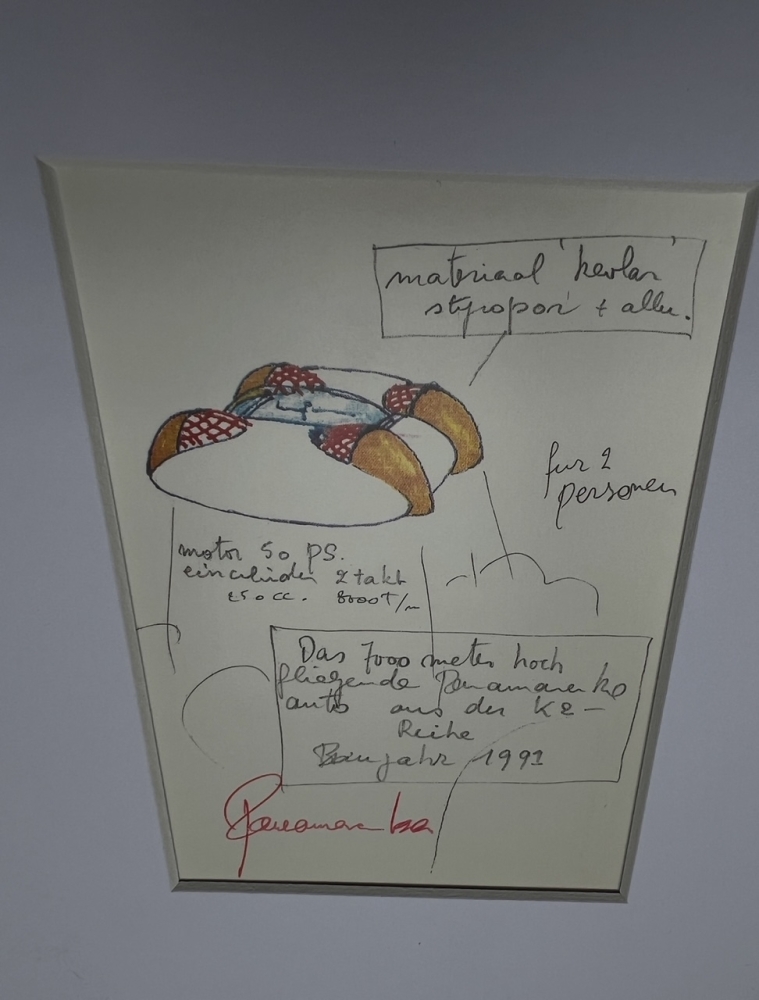 materiaal 'kevlar'
styropor + allu.
fur 2
personen
motor 50 PS.
eincilinder 2 takt
250 cc. 8000T/m
Das 7000 meter hoch
fliegende Panamarenko
auto aus der K2-
Reihe
Baujahr 1991
Panamarenko